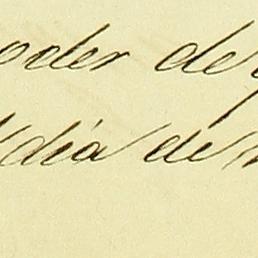 oder de
dia de